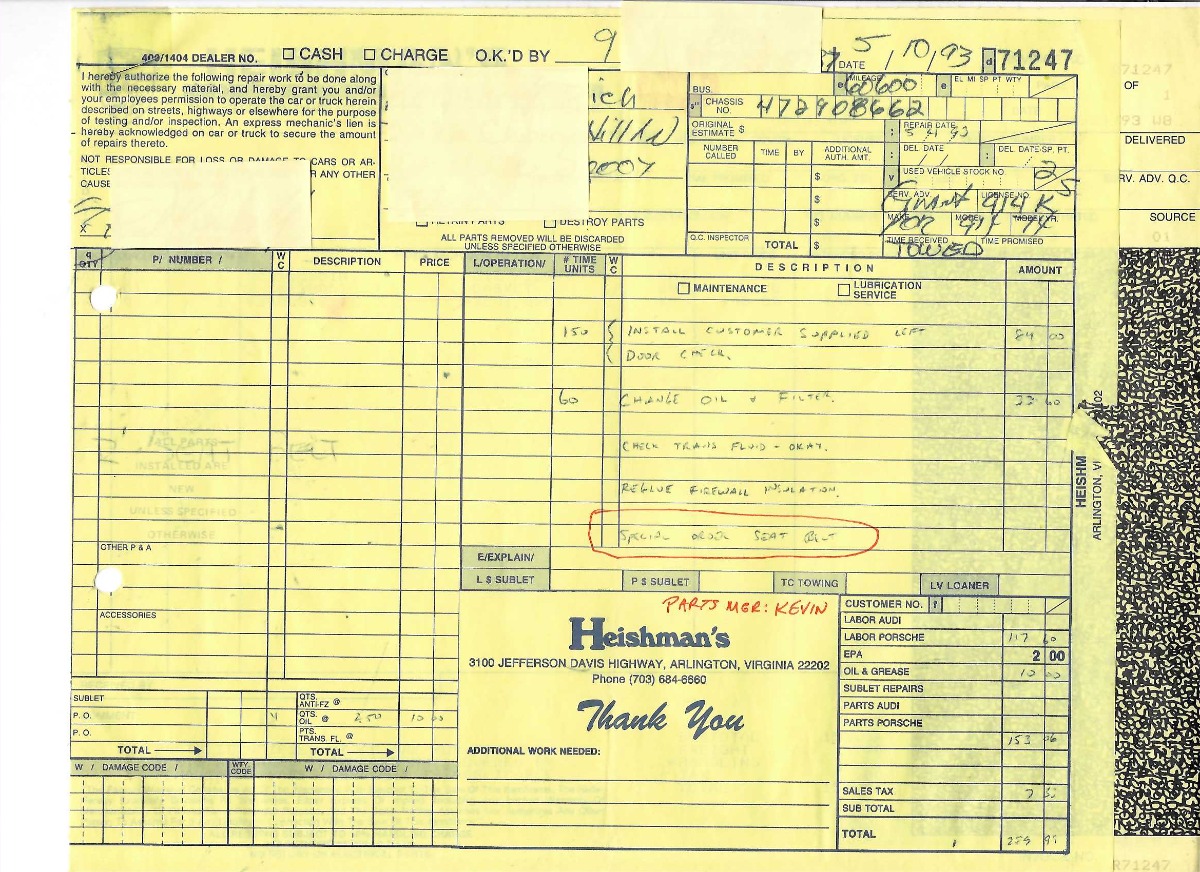 409/1404 DEALER NO. ☐ CASH ☐ CHARGE O.K.'D BY 9
DATE 5/10/93 d 71247
I hereby authorize the following repair work to be done along
with the necessary material, and hereby grant you and/or
your employees permission to operate the car or truck herein
described on streets, highways or elsewhere for the purpose
of testing and/or inspection. An express mechanic's lien is
hereby acknowledged on car or truck to secure the amount
of repairs thereto.
NOT RESPONSIBLE FOR LOSS OR DAMAGE TO CARS OR AR-
TICLES
R ANY OTHER
CAUSE
ich
RETAIN PARTS ☐ DESTROY PARTS
ALL PARTS REMOVED WILL BE DISCARDED
UNLESS SPECIFIED OTHERWISE
BUS.
MILEAGE 60600
EL MI SP PT WTY
CHASSIS NO. 472908662
ORIGINAL ESTIMATE $
REPAIR DATE
NUMBER CALLED TIME BY ADDITIONAL AUTH. AMT.
DEL. DATE DEL. DATE-SP. PT.
USED VEHICLE STOCK NO.
$
$
$
SERV. ADV. LICENSE NO.
Grant
MAKE MODEL MODEL YR.
POR 914 74
Q.C. INSPECTOR TOTAL $
TIME RECEIVED TIME PROMISED
TOWED
QTY P/ NUMBER / W C DESCRIPTION PRICE L/OPERATION/ # TIME UNITS W C DESCRIPTION AMOUNT
☐ MAINTENANCE ☐ LUBRICATION SERVICE
150 INSTALL CUSTOMER SUPPLIED LEFT 84 00
DOOR CHECK.
60 CHANGE OIL & FILTER. 33 60
CHECK TRANS FLUID - OKAY.
ALL PARTS
INSTALLED ARE
NEW
UNLESS SPECIFIED
OTHERWISE
REGLUE FIREWALL INSULATION.
SPECIAL ORDER SEAT BELT
OTHER P & A
E/EXPLAIN/
L $ SUBLET P $ SUBLET TC TOWING LV LOANER
ACCESSORIES
PARTS MGR: KEVIN
Heishman's
3100 JEFFERSON DAVIS HIGHWAY, ARLINGTON, VIRGINIA 22202
Phone (703) 684-6660
Thank You
ADDITIONAL WORK NEEDED:
CUSTOMER NO.
LABOR AUDI
LABOR PORSCHE 117 60
EPA 2 00
OIL & GREASE 10 00
SUBLET REPAIRS
PARTS AUDI
PARTS PORSCHE
153 06
SALES TAX 7
SUB TOTAL
TOTAL
SUBLET
P. O.
P. O.
TOTAL
QTS. ANTI-FZ @
4 QTS. OIL @ 2.50 10 00
PTS. TRANS. FL. @
TOTAL
W / DAMAGE CODE / WTY. CODE W / DAMAGE CODE /
71247
OF 1
DELIVERED
RV. ADV. Q.C.
SOURCE
01
HEISHM
ARLINGTON, VI
R71247